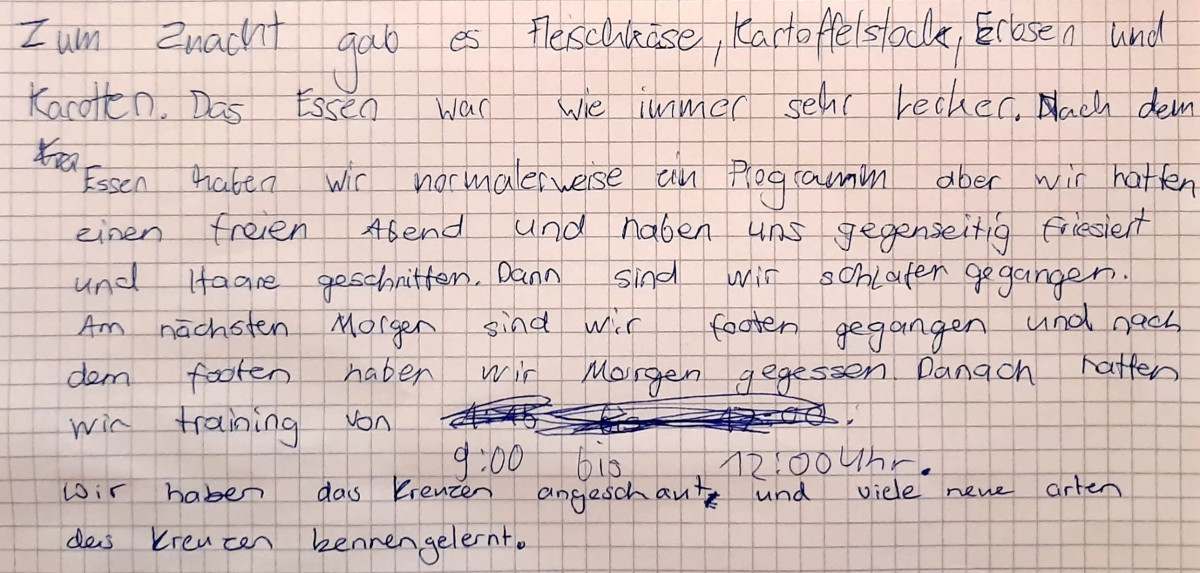 Zum Znacht gab es Fleischkäse, Kartoffelstock, Erbsen und
Karotten. Das Essen war wie immer sehr lecker. Nach dem
Essen haben wir normalerweise ein Programm aber wir hatten
einen freien Abend und haben uns gegenseitig friesiert
und Haare geschnitten. Dann sind wir schlafen gegangen.
Am nächsten Morgen sind wir footen gegangen und nach
dem footen haben wir Morgen gegessen. Danach hatten
wir training von
9:00 bis 12:00 Uhr.
Wir haben das Kreuzen angeschaut und viele neue arten
des Kreuzen kennengelernt.